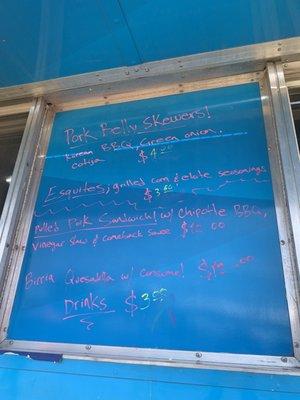 Pork Belly Skewers!
Korean BBQ, Green onion,
cotija $4.00
Esquites; grilled corn & elote seasonings
$3.50
Pulled Pork Sandwich! w/ Chipotle BBQ,
Vinegar slaw & comeback sauce $12.00
Birria Quesadilla w/ consomé .00
Drinks $3.00